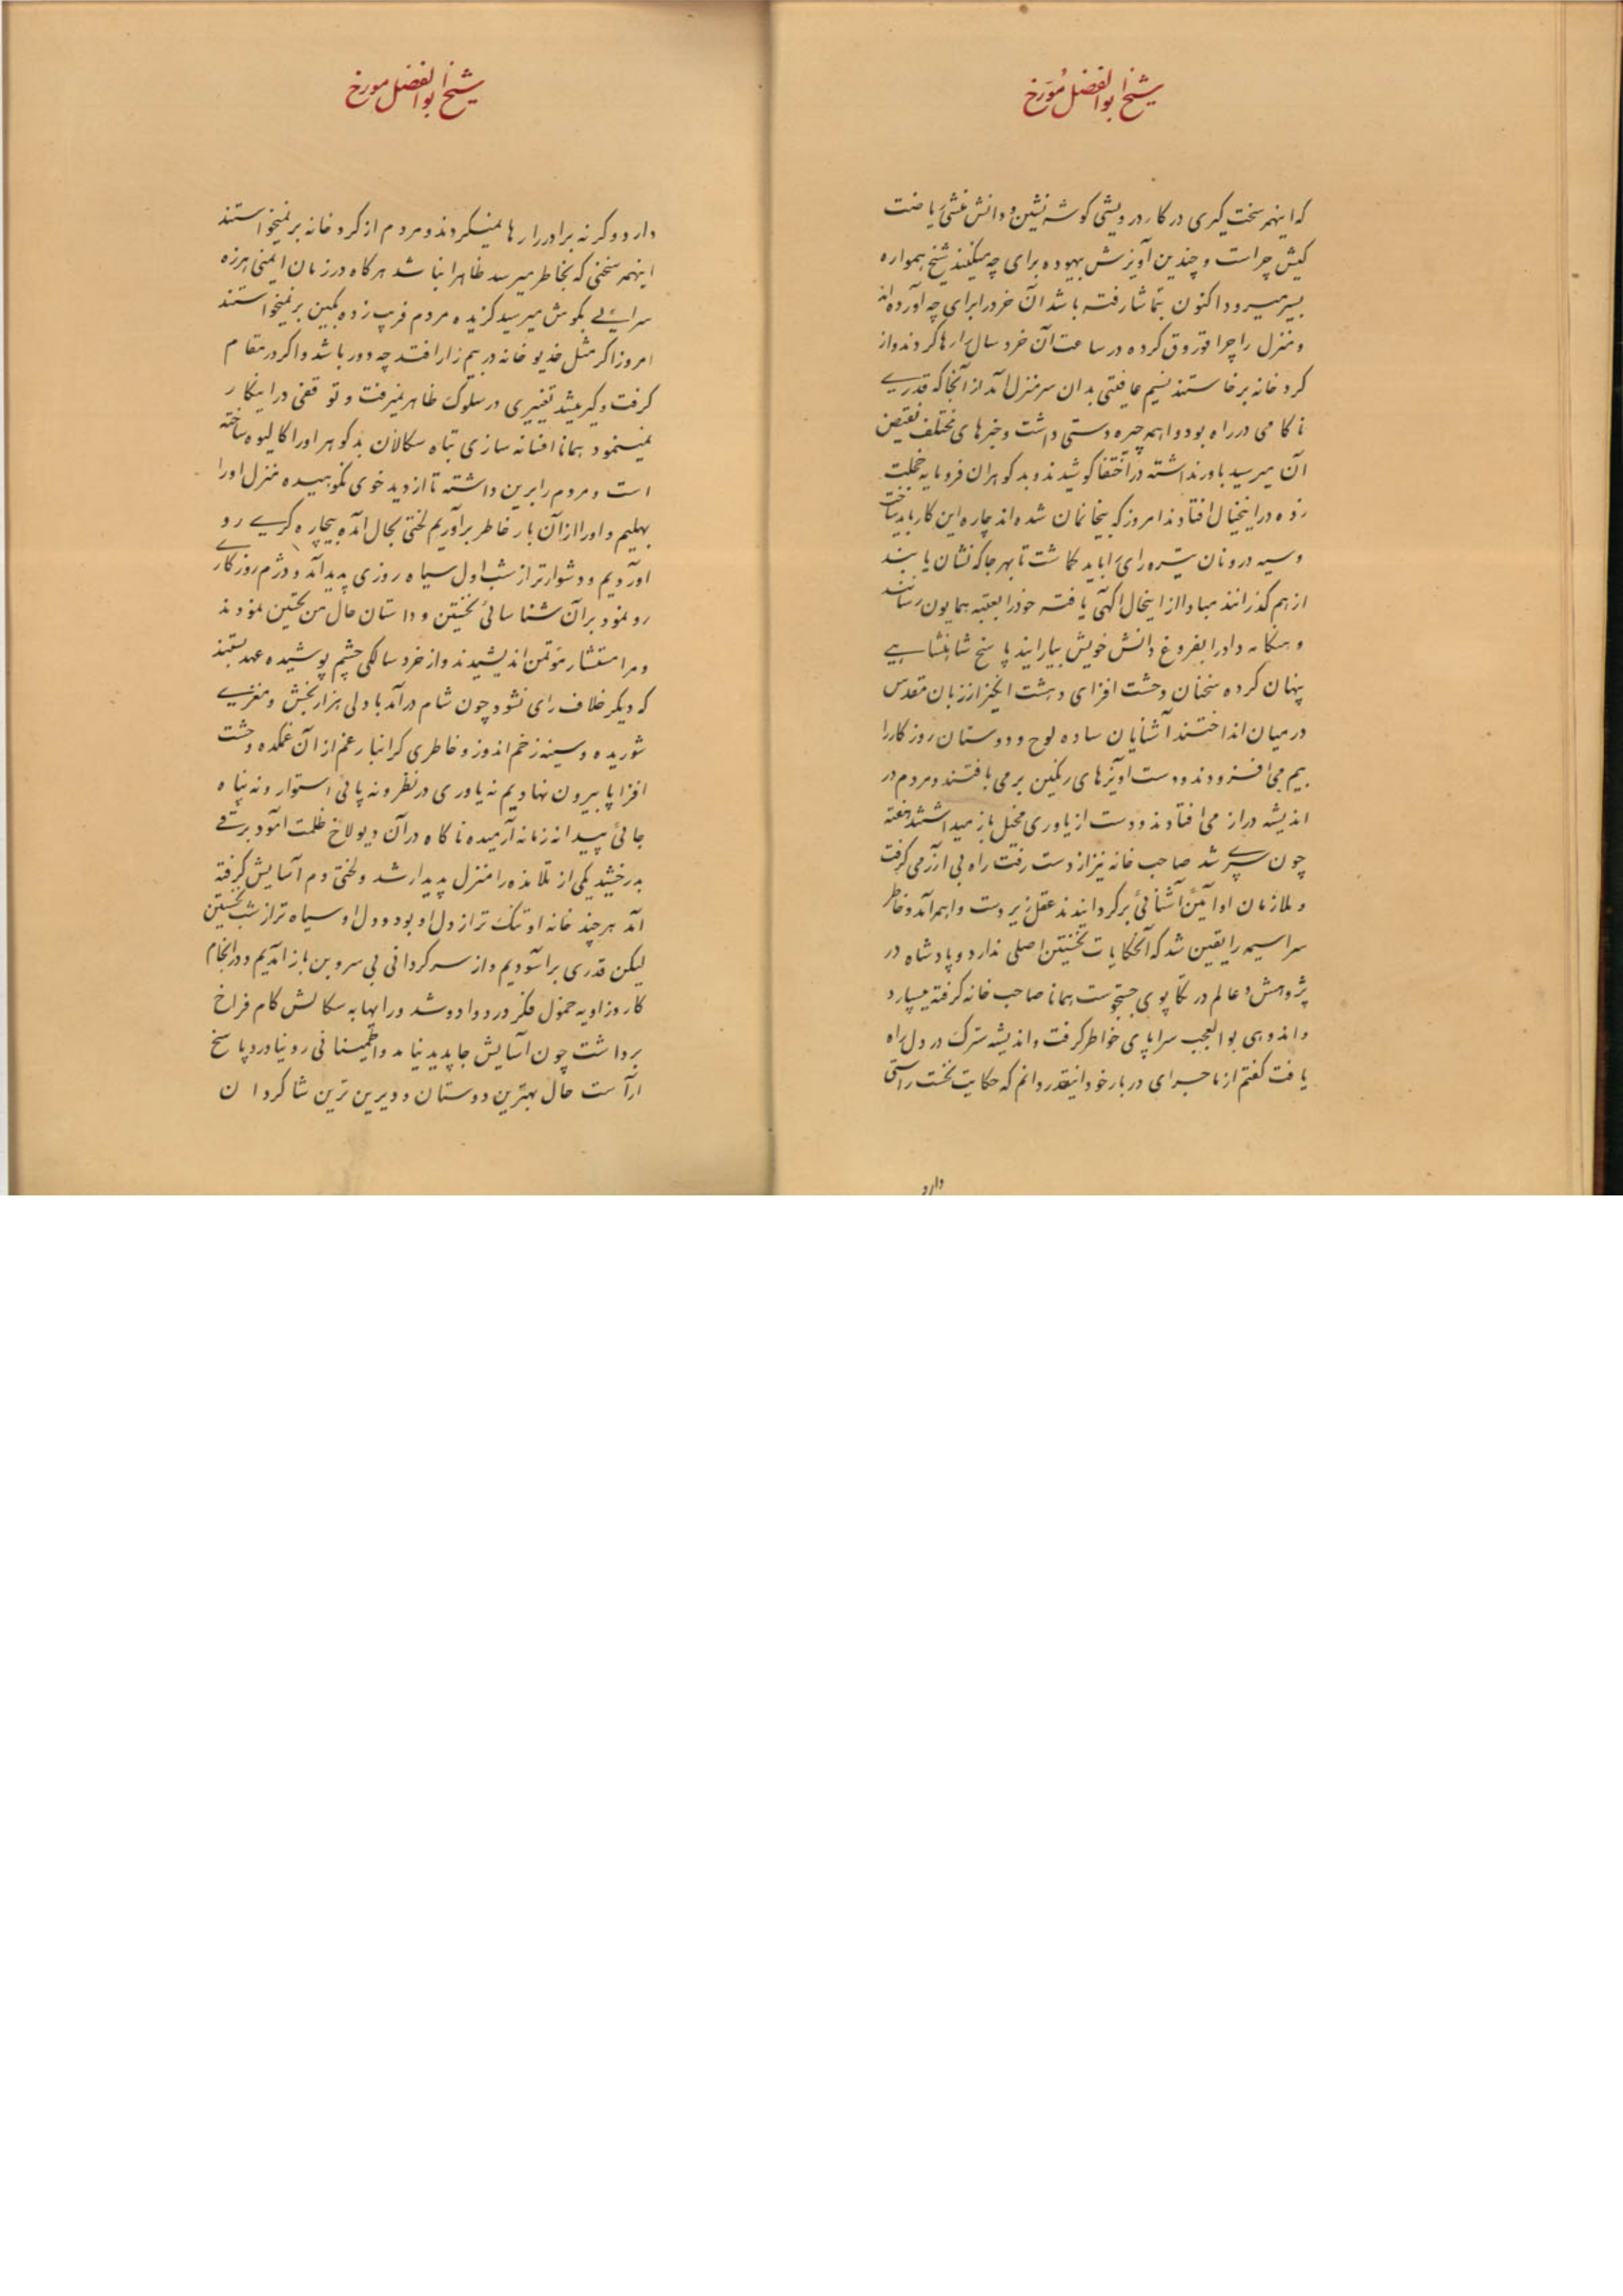 شیخ ابوالفضل مورخ
که اینهمه سخت گیری در کار درویشی گوشه نشین و دانش منشی ریاضت
کیش چراست و چندین آویزش بیهوده برای چه میکنند شیخ همواره
بسیر میرود اکنون بتماشا رفته باشد آن خرد را برای چه آورده اند
و منزل را چرا قوروق کرده در ساعت آن خرد سال را رها کردند و از
گرد خانه برخاستند نسیم عافیتی بدان سر منزل آمد از آنجا که قدری
ناکامی در راه بود و واهمه چیره دستی داشت و خبرهای مختلف نقیض
آن میرسید باور نداشته در اختفا کوشیدند و بد گوهران فرومایه خجلت
زده در اینخیال افتادند امروز که بیخانمان شده اند چاره این کار باید ساخت
و سیه درونان تیره رای را باید گماشت تا بهر جا که نشان یابند
از هم گذرانند مبادا از اینحال آگهی یافته خود را بعتبه همایون رسانند
و هنگامه داد را بفروغ دانش خویش بیارایند پاسخ شاهنشاهی
پنهان کرده سخنان وحشت افزای دهشت انگیز از زبان مقدس
در میان انداختند آشنایان ساده لوح و دوستان روزگار را
بیم می افزودند و دست آویزهای رنگین بر می بافتند و مردم در
اندیشه دراز می افتادند و دست از یاوری مخیل باز میداشتند هفته
چون سپری شد صاحب خانه نیز از دست رفت راه بی آزرمی گرفت
و ملازمان او آئین آشنائی برگردانیدند عقل زیر دست واهمه آمد و خاطر
سراسیمه را یقین شد که آن حکایات نخستین اصلی ندارد و پادشاه در
پژوهش و عالم در تکاپوی جستجوست همانا صاحب خانه گرفته میسپارد
و اندوهی بوالعجب سراپای خواطر گرفت و اندیشه سترگ در دل راه
یافت گفتم از ماجرای دربار خود اینقدر دانم که حکایت نخست راستی
دارد
شیخ ابوالفضل مورخ
دارد و گرنه برادر را رها نمیکردند و مردم از گرد خانه بر نمیخواستند
اینهمه سخنی که بخاطر میرسد ظاهرا نباشد هرگاه در زمان ایمنی هرزه
سرائی بگوش میرسید گزیده مردم فریب زده بکمین بر نمیخواستند
امروز اگر مثل خدیو خانه در بیم زار افتد چه دور باشد و اگر در مقام
گرفت و گیر میشد تغییری در سلوک ظاهر نمیرفت و توقفی در اینکار
نمینمود همانا افسانه سازی تباه سگالان بد گوهر او را کالیوه ساخته
است و مردم را برین داشته تا از دید خوی نکوهیده منزل او را
بهلیم و او را از آن بار خاطر برآوریم لختی بحال آمده بچاره گری رو
آوردیم و دشوارتر از شب اول سیاه روزی پدید آمد و دژم روزگاری
رو نمود بر آن شناسائی نخستین و داستان حال من تحسین نمودند
و مرا مستشار مؤتمن اندیشیدند و از خرد سالگی چشم پوشیده عهد بستند
که دیگر خلاف رای نشود چون شام درآمد با دلی هزار بخش و مغزی
شوریده و سینه زخم اندوز و خاطری گرانبار غم از آن غمکده وحشت
افزا پا بیرون نهادیم نه یاوری در نظر و نه پائی استوار و نه پناه
جائی پیدا نه زمانه آرمیده ناگاه در آن دیولاخ ظلمت آمود برقی
بدرخشید یکی از تلامذه را منزل پدیدار شد و لختی دم آسایش گرفته
آمد هر چند خانه او تنگ تر از دل او بود و دل او سیاه تر از شب نخستین
لیکن قدری برآسودیم و از سرگردانی بی سروبن باز آمدیم و در انجام
کار زاویه خمول فکر در دوادو شد و رایها به سگالش گام فراخ
برداشت چون آسایش جا پدید نیامد و اطمینانی رو نیاورد پاسخ
آراست حال بهترین دوستان و دیرین ترین شاگردان